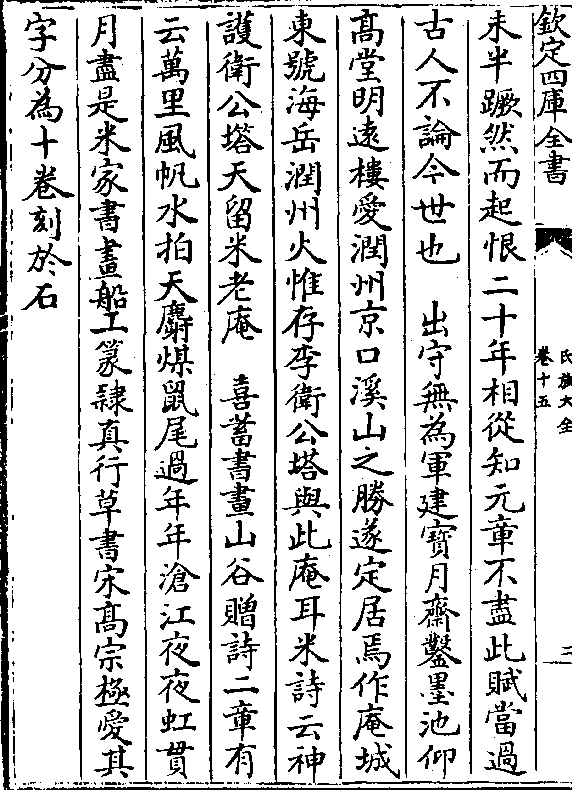 欽定四庫全書
氏族大全
卷十五
二
未半蹶然而起恨二十年相從知元章不盡此賦當過
古人不論今世也　出守無為軍建寶月齋鑿墨池仰
髙堂明逺樓愛潤州京口溪山之勝遂定居焉作庵城
東號海岳潤州火惟存李衛公塔與此庵耳米詩云神
護衛公塔天留米老庵　喜蓄書畫山谷贈詩二章有
云萬里風帆水拍天麝煤鼠尾過年年滄江夜夜虹貫
月盡是米家書畫船工篆隸真行草書宋髙宗極愛其
字分為十卷刻於石